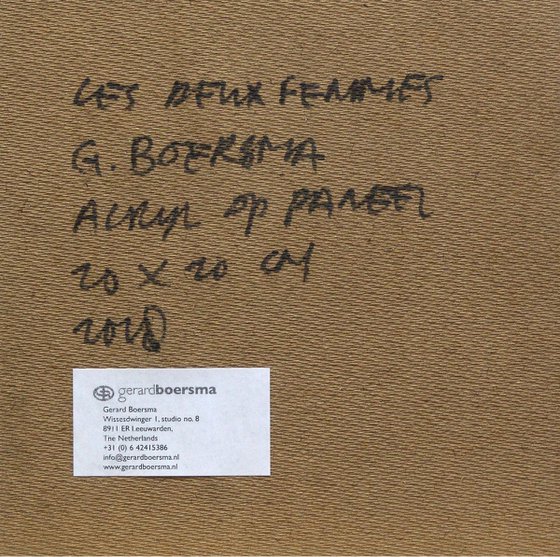 LES DEUX FEMMES
G. BOERSMA
ACRYL OP PANEEL
20 X 20 CM
2018
gerardboersma
Gerard Boersma
Wissesdwinger 1, studio no. 8
8911 ER Leeuwarden,
The Netherlands
+31 (0) 6 42415386
info@gerardboersma.nl
www.gerardboersma.nl